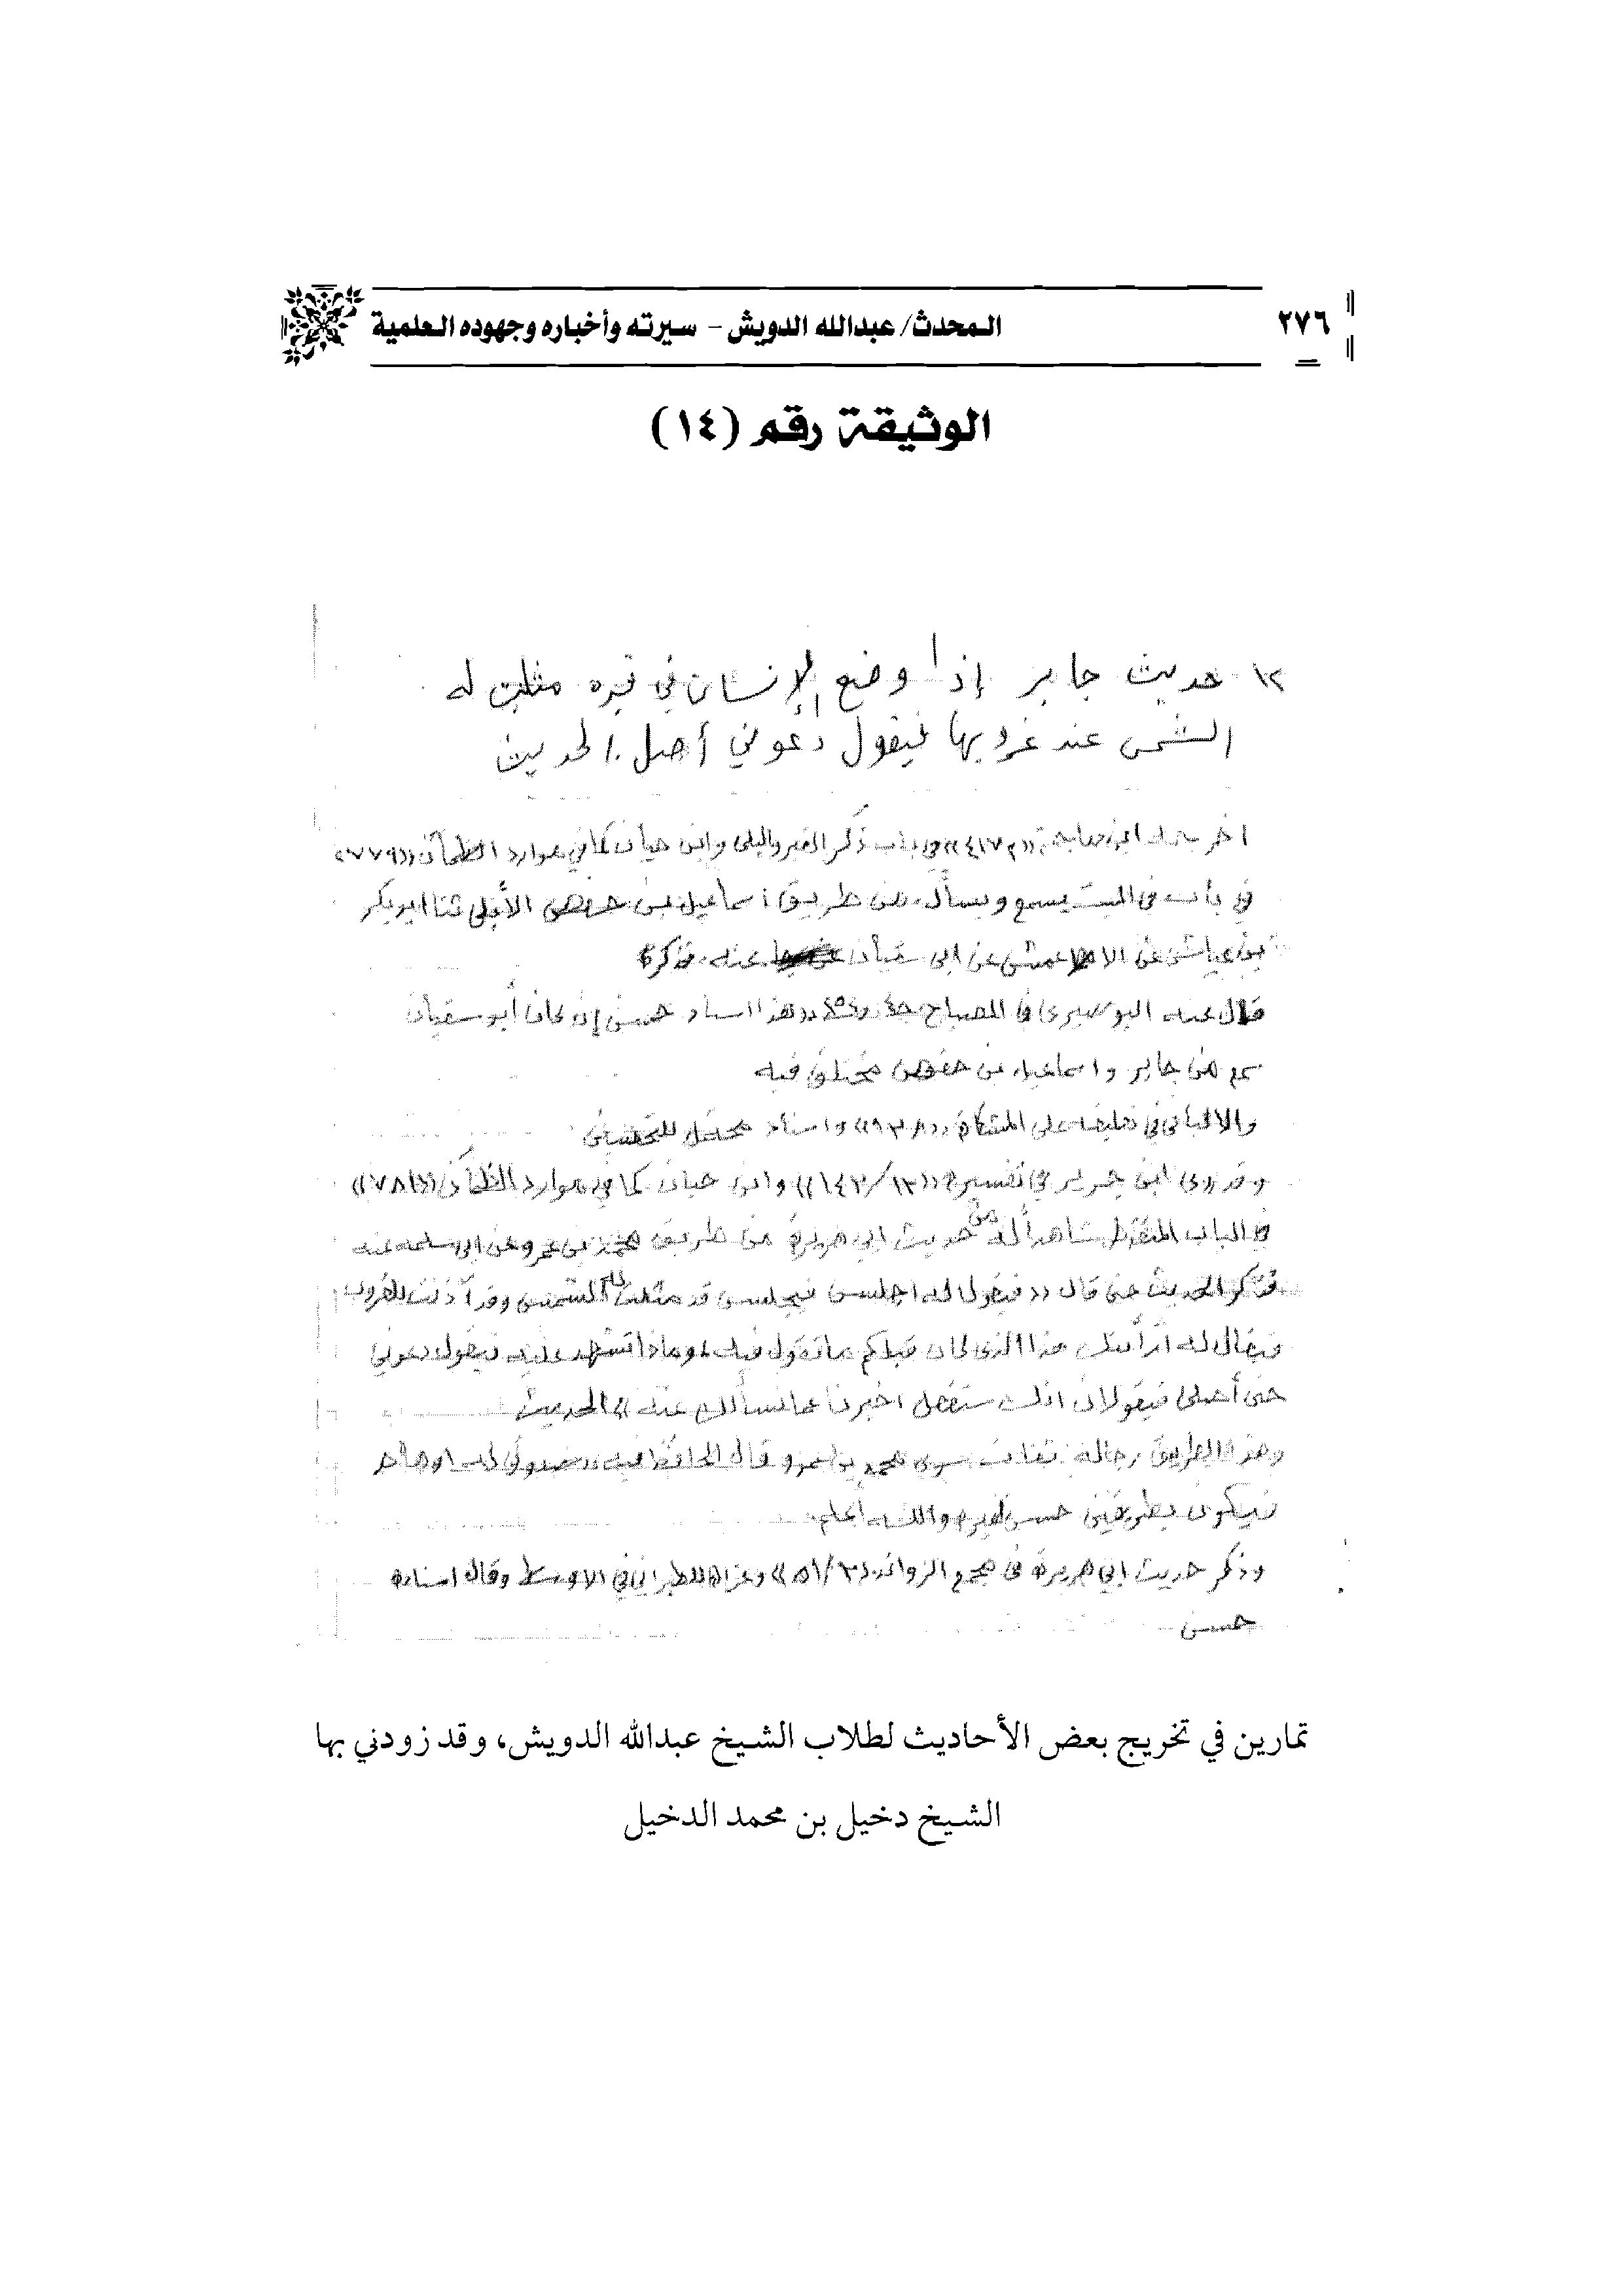 ٢٧٦
المحدث/ عبدالله الدويش - سيرته وأخباره وجهوده العلمية
الوثيقة رقم (١٤)
١٢ حديث جابر إذا وضع الإنسان في قبره مثلت له
الشمس عند غروبها فيقول دعوني أصل. الحديث
اخرجه ابن ماجة ((٤١٧٢)) في باب ذكر القبر والبلى وابن حبان كما في موارد الظمآن ((٧٧٩))
في باب في الميت يسمع ويسأل. من طريق اسماعيل بن حفص الأبلي ثنا ابوبكر
بن عياش عن الاعمش عن ابي سفيان عنه. فذكره
قال عنه البوصيري في المصباح ((هذا اسناد حسن إن كان أبو سفيان
سمع من جابر واسماعيل بن حفص مختلف فيه
والالباني في تعليقه على المشكاة ((١٣٨)) واسناده محتمل للتحسين
وقد روى ابن جرير في تفسيره ((١٤٣/١٣)) وابن حبان كما في موارد الظمآن ((٧٨١))
في الباب المتقدم شاهداً له من حديث ابي هريرة من طريق محمد بن عمرو عن ابي سلمة عنه
فذكر الحديث حتى قال ((فيقول له اجلس فيجلس قد مثلت له الشمس وقد آذنت للغروب
فيقال له أرأيتك هذا الذي كان قبلكم ما تقول فيه وماذا تشهد عليه فيقول دعوني
حتى أصلي فيقولان انك ستفعل اخبرنا عما نسألك عنه)) الحديث
وهذا الطريق رجاله ثقات سوى محمد بن عمرو قال الحافظ فيه: صدوق له اوهام
فيكون بطريقين حسن لغيره والله اعلم
وذكر حديث ابي هريرة في مجمع الزوائد ((٥١/٣)) وعزاه للطبراني في الاوسط وقال اسناده
حسن
تمارين في تخريج بعض الأحاديث لطلاب الشيخ عبدالله الدويش، وقد زودني بها
الشيخ دخيل بن محمد الدخيل